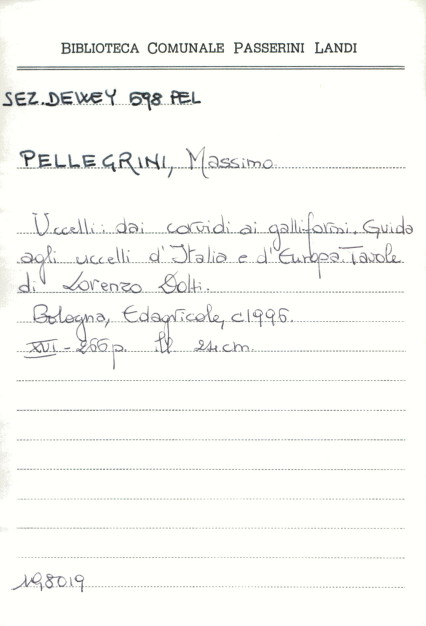 BIBLIOTECA COMUNALE PASSERINI LANDI
SEZ. DEWEY 598 PEL
PELLEGRINI, Massimo
Uccelli: dai corvidi ai galliformi. Guida
agli uccelli d'Italia e d'Europa. Tavole
di Lorenzo Dotti.
Bologna, Edagricole, c1995.
XVI-266 p. ill 24 cm.
198019